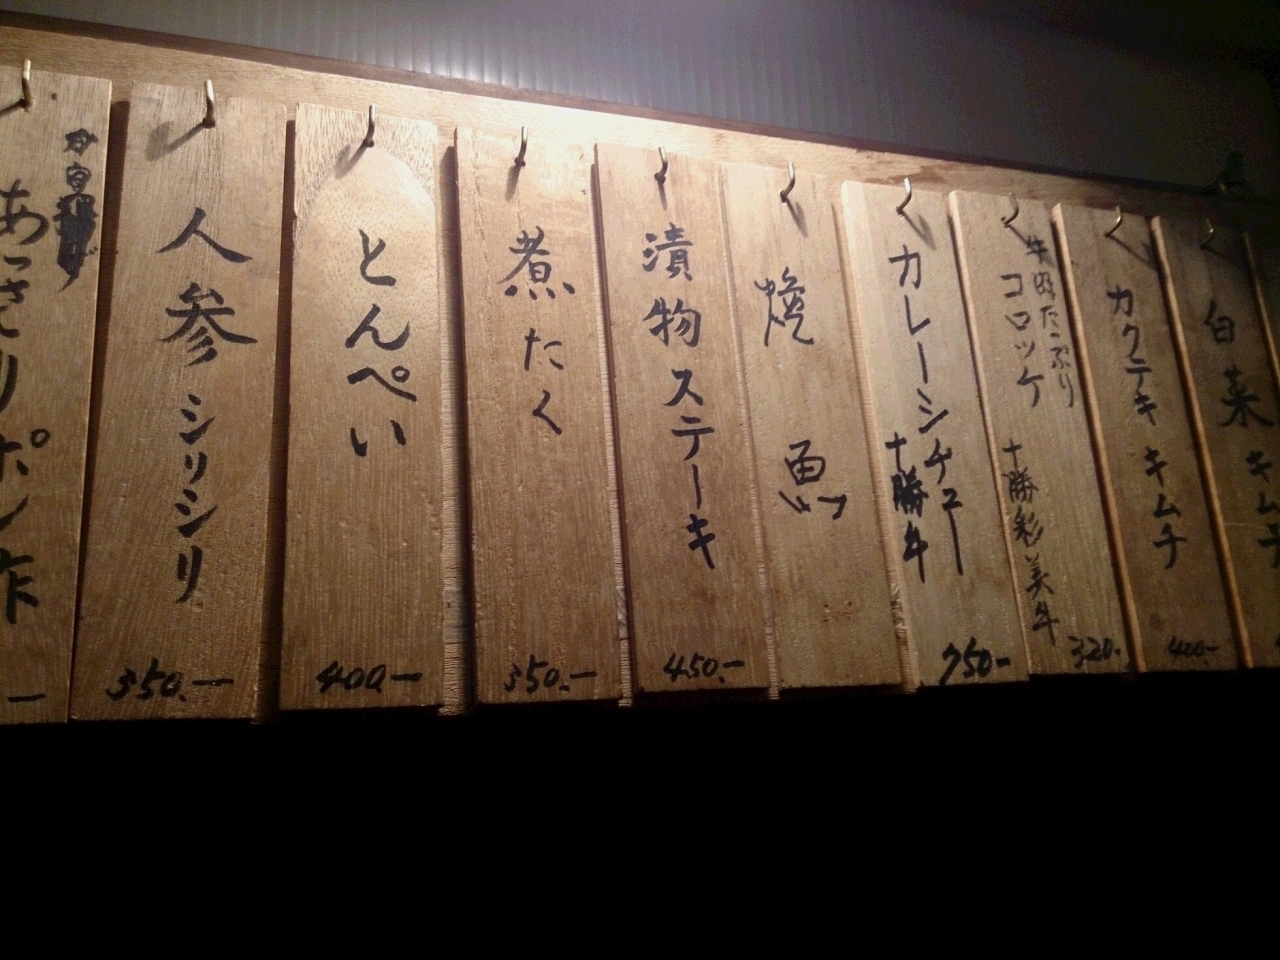 あっさりポン酢
人参シリシリ
350.-
とんぺい
400-
煮たく
350.-
漬物ステーキ
450.-
焼魚
カレーシチュー
十勝牛
750-
牛肉たっぷり
コロッケ
十勝彩美牛
320.
カクテキキムチ
400.-
白菜キムチ